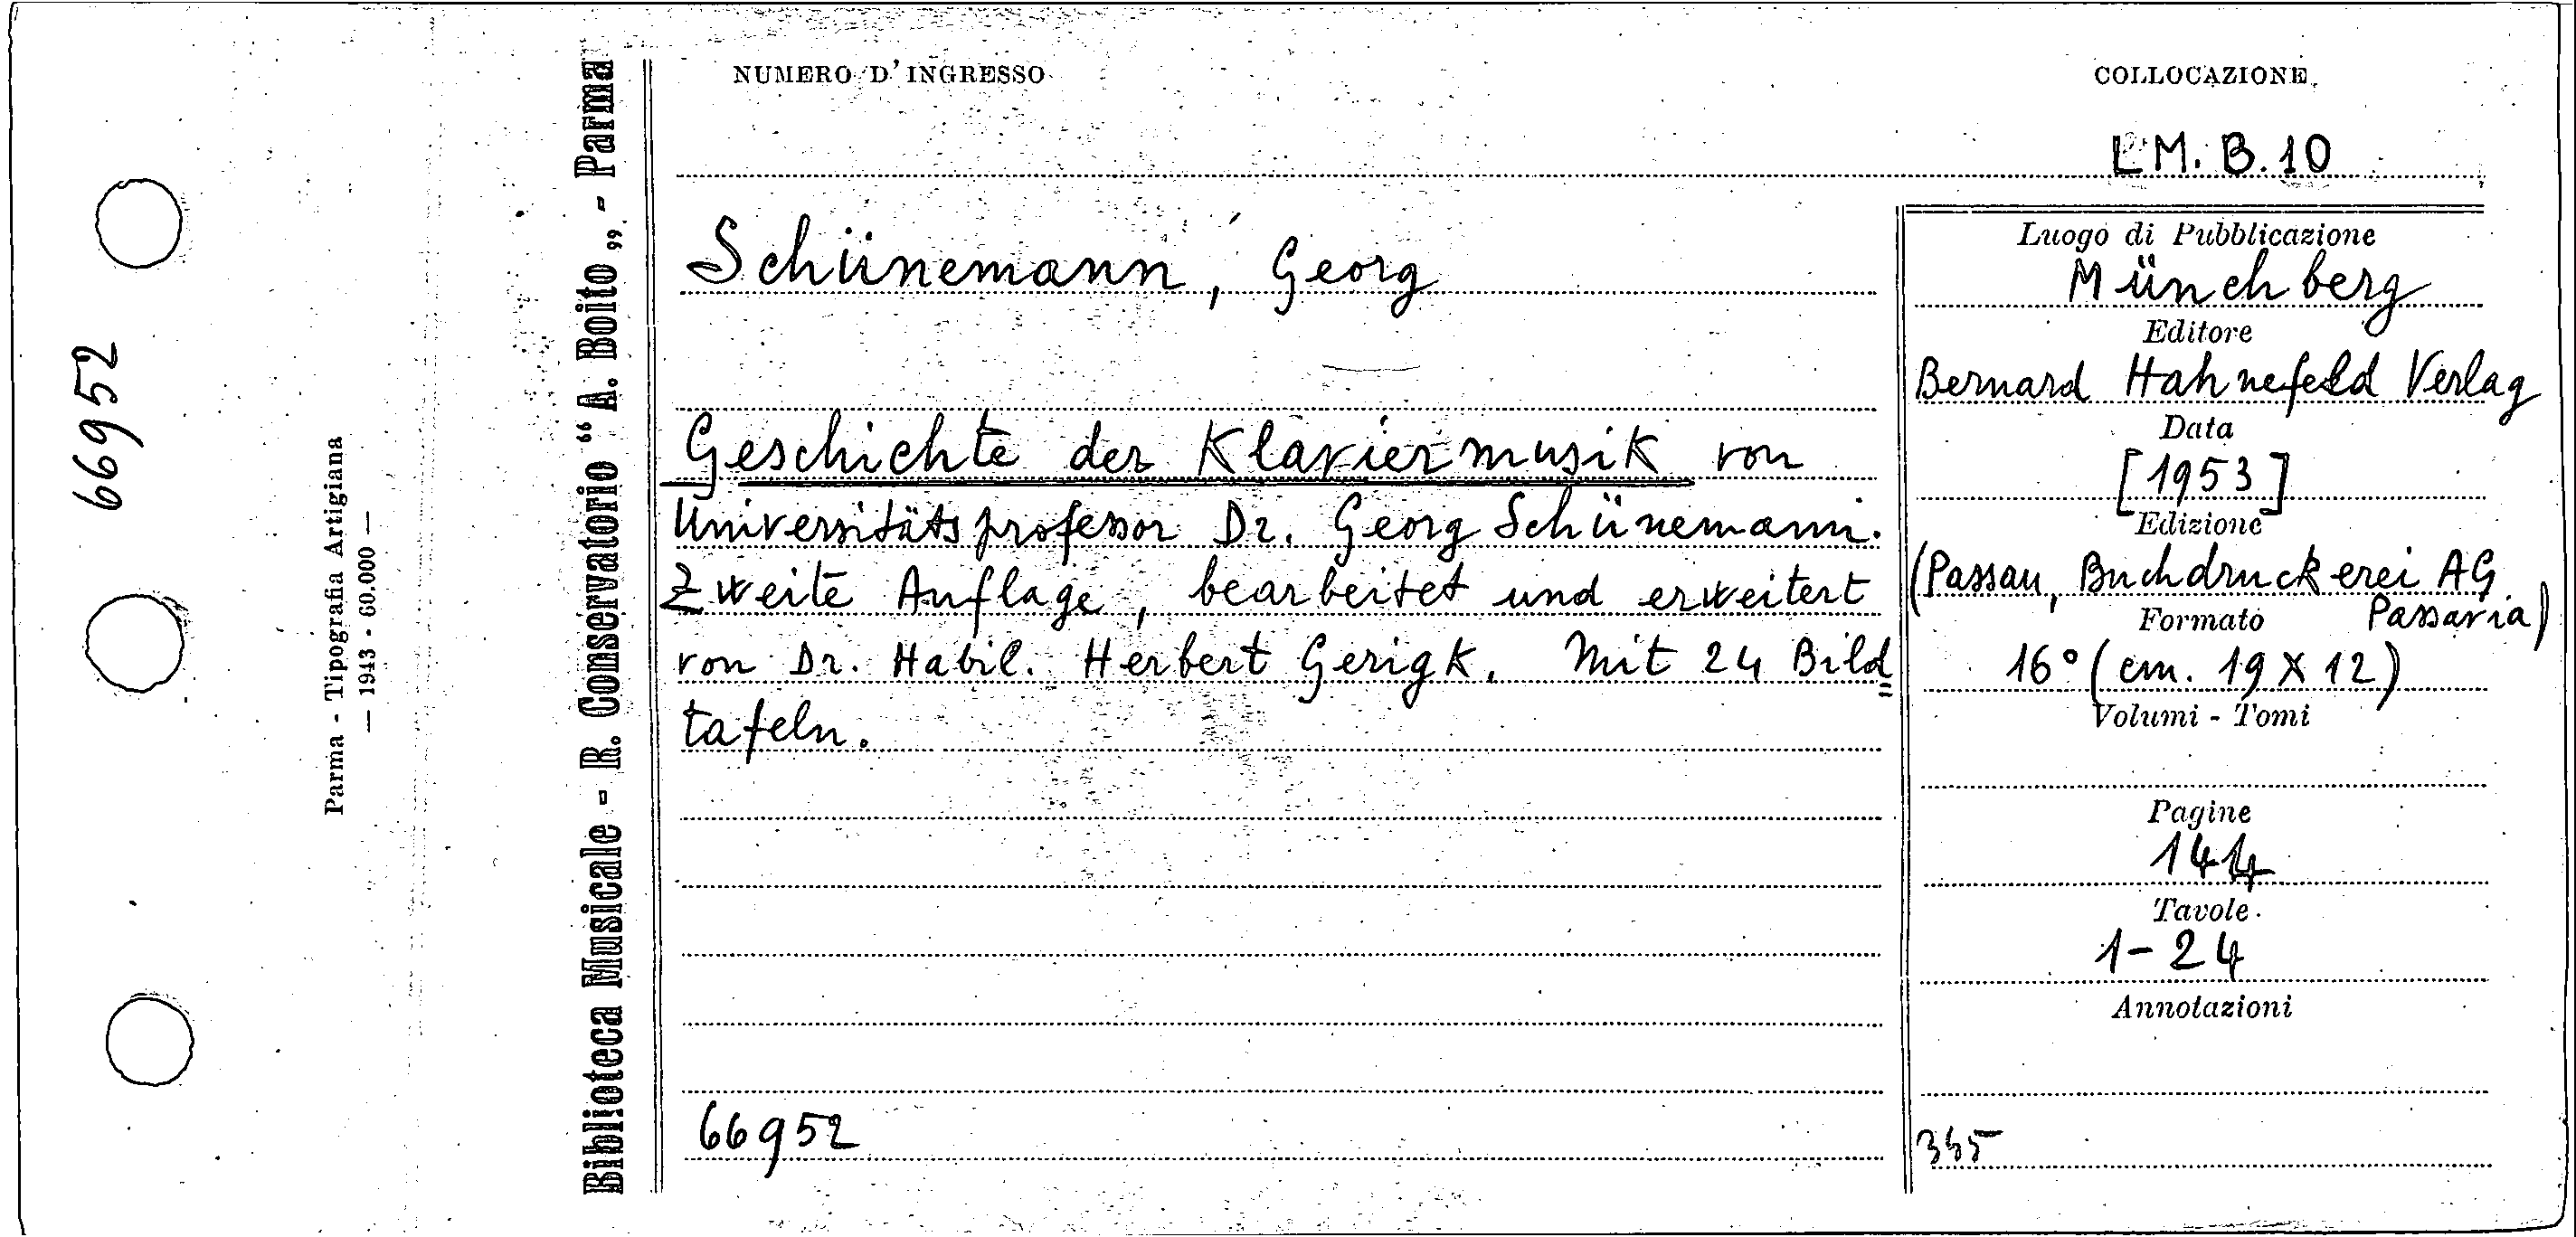 66952
Parma - Tipografia Artigiana
— 1943 - 60.000 —
Biblioteca Musicale - R. Conservatorio “A. Boito„ - Parma
NUMERO D'INGRESSO
COLLOCAZIONE
L.M. B.10
Schünemann, Georg
Geschichte der Klaviermusik von
Universitätsprofessor Dr. Georg Schünemann.
Zweite Auflage, bearbeitet und erweitert
von Dr. Habil. Herbert Gerigk. Mit 24 Bild=
tafeln.
66952
Luogo di Pubblicazione
Münchberg
Editore
Bernard Hahnefeld Verlag
Data
[1953]
Edizione
(Passau, Buchdruckerei AG
Passavia)
Formato
16° (cm. 19 X 12)
Volumi - Tomi
Pagine
144
Tavole
1-24
Annotazioni